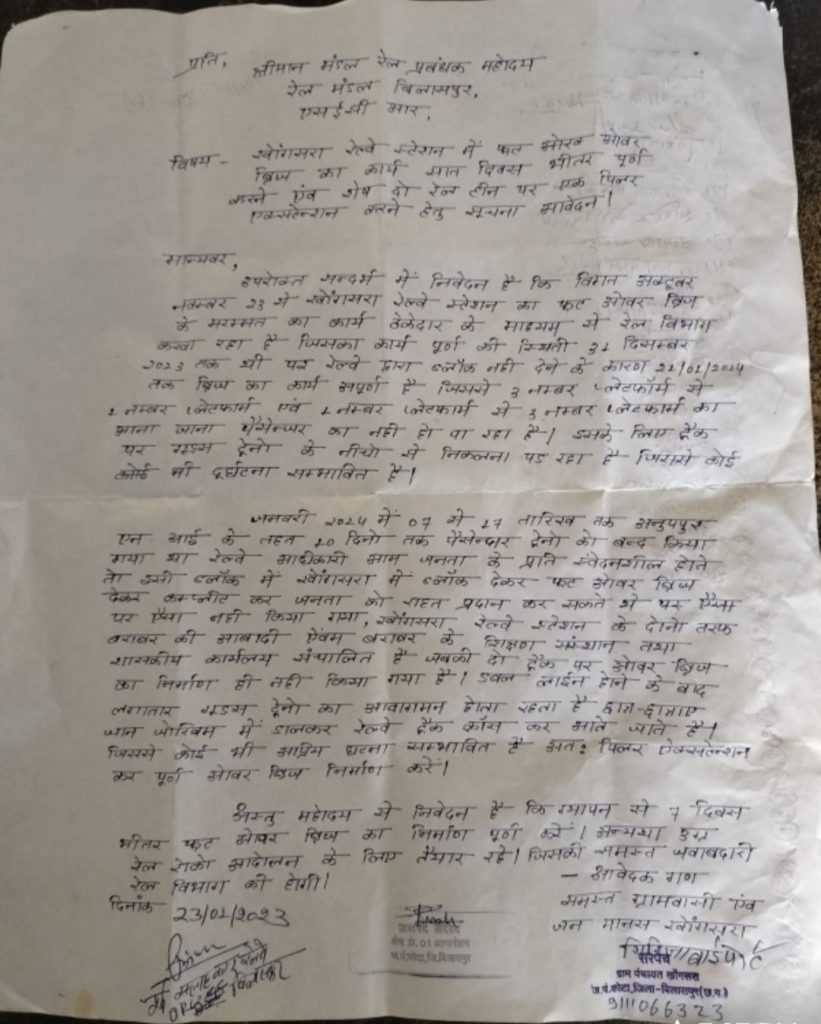 प्रति,
श्रीमान मंडल रेल प्रबंधक महोदय
रेल मंडल बिलासपुर,
एसईसी आर,
विषय - खोंगसरा रेल्वे स्टेशन में फुट ओवर
ब्रिज का कार्य सात दिवस भीतर पूर्ण
करने एंव शेष दो रेल लाइन पर एक पिलर
एक्सटेन्शन करने हेतु सूचना आवेदन।
मान्यवर,
उपरोक्त सन्दर्भ में निवेदन है कि विगत अक्टूबर
नवम्बर 23 से खोंगसरा रेल्वे स्टेशन का फुट ओवर ब्रिज
के मरम्मत का कार्य ठेकेदार के माध्यम से रेल विभाग
करवा रहा है जिसका कार्य पूर्ण की स्थिती 31 दिसम्बर
2023 तक थी पर रेल्वे द्वारा ब्लॉक नही देने के कारण 21/01/2024
तक ब्रिज का कार्य अपूर्ण है जिससे 3 नम्बर प्लेटफॉर्म से
1 नम्बर प्लेटफार्म एवं 1 नम्बर प्लेटफार्म से 3 नम्बर प्लेटफार्म का
आना जाना पैसेन्जर का नही हो पा रहा है। इसके लिए ट्रैक
पर गुड्स ट्रेनो के नीचो से निकलना पड रहा है जिससे कोई
भी दुर्घटना सम्भावित है।
जनवरी 2024 में 07 से 17 तारिख तक अनुपपुर
एन आई के तहत 10 दिनो तक पैसेन्जर ट्रेनो को बन्द किया
गया था रेल्वे अधिकारी आम जनता के प्रति स्वेदनशील होते
तो इसी ब्लॉक में खोंगसरा में ब्लॉक देकर फुट ओवर ब्रिज
देकर कम्प्लीट कर जनता को राहत प्रदान कर सकते थे पर ऐसा
पर ऐसा नही किया गया, खोंगसरा रेल्वे स्टेशन के दोनो तरफ
बराबर की आबादी ऐवम बराबर के शिक्षण संस्थान तथा
शासकीय कार्यलय संचालित है जबकी दो ट्रैक पर ओवर ब्रिज
का निर्माण ही नही किया गया है। डबल लाईन होने के बाद
लगातार गुड्स ट्रेनो का आवागमन होता रहता है छात्र-छात्राए
जान जोखिम में डालकर रेल्वे ट्रैक क्रॉस कर आते जाते है।
जिससे कोई भी अप्रिय घटना सम्भावित है अत: पिलर ऐक्सटेन्शन
कर पूर्ण ओवर ब्रिज निर्माण करें।
अस्तु महोदय से निवेदन है कि ज्ञापन से 7 दिवस
भीतर फुट ओवर ब्रिज का निर्माण पूर्ण करें। अन्यथा उग्र
रेल रोको आंदोलन के लिए तैयार रहे। जिसकी समस्त जवाबदारी
रेल विभाग की होगी।
- आवेदक गण
दिनांक 23/01/2023
समस्त ग्रामवासी एंव
जन मानस खोंगसरा
जनपद सदस्य
क्षेत्र क्रं. 01
ज.पं.कोटा,जि.बिलासपुर
सरपंच
ग्राम पंचायत खोंगसरा
ज.पं.कोटा,जिला-बिलासपुर(छ.ग.)
9111066323